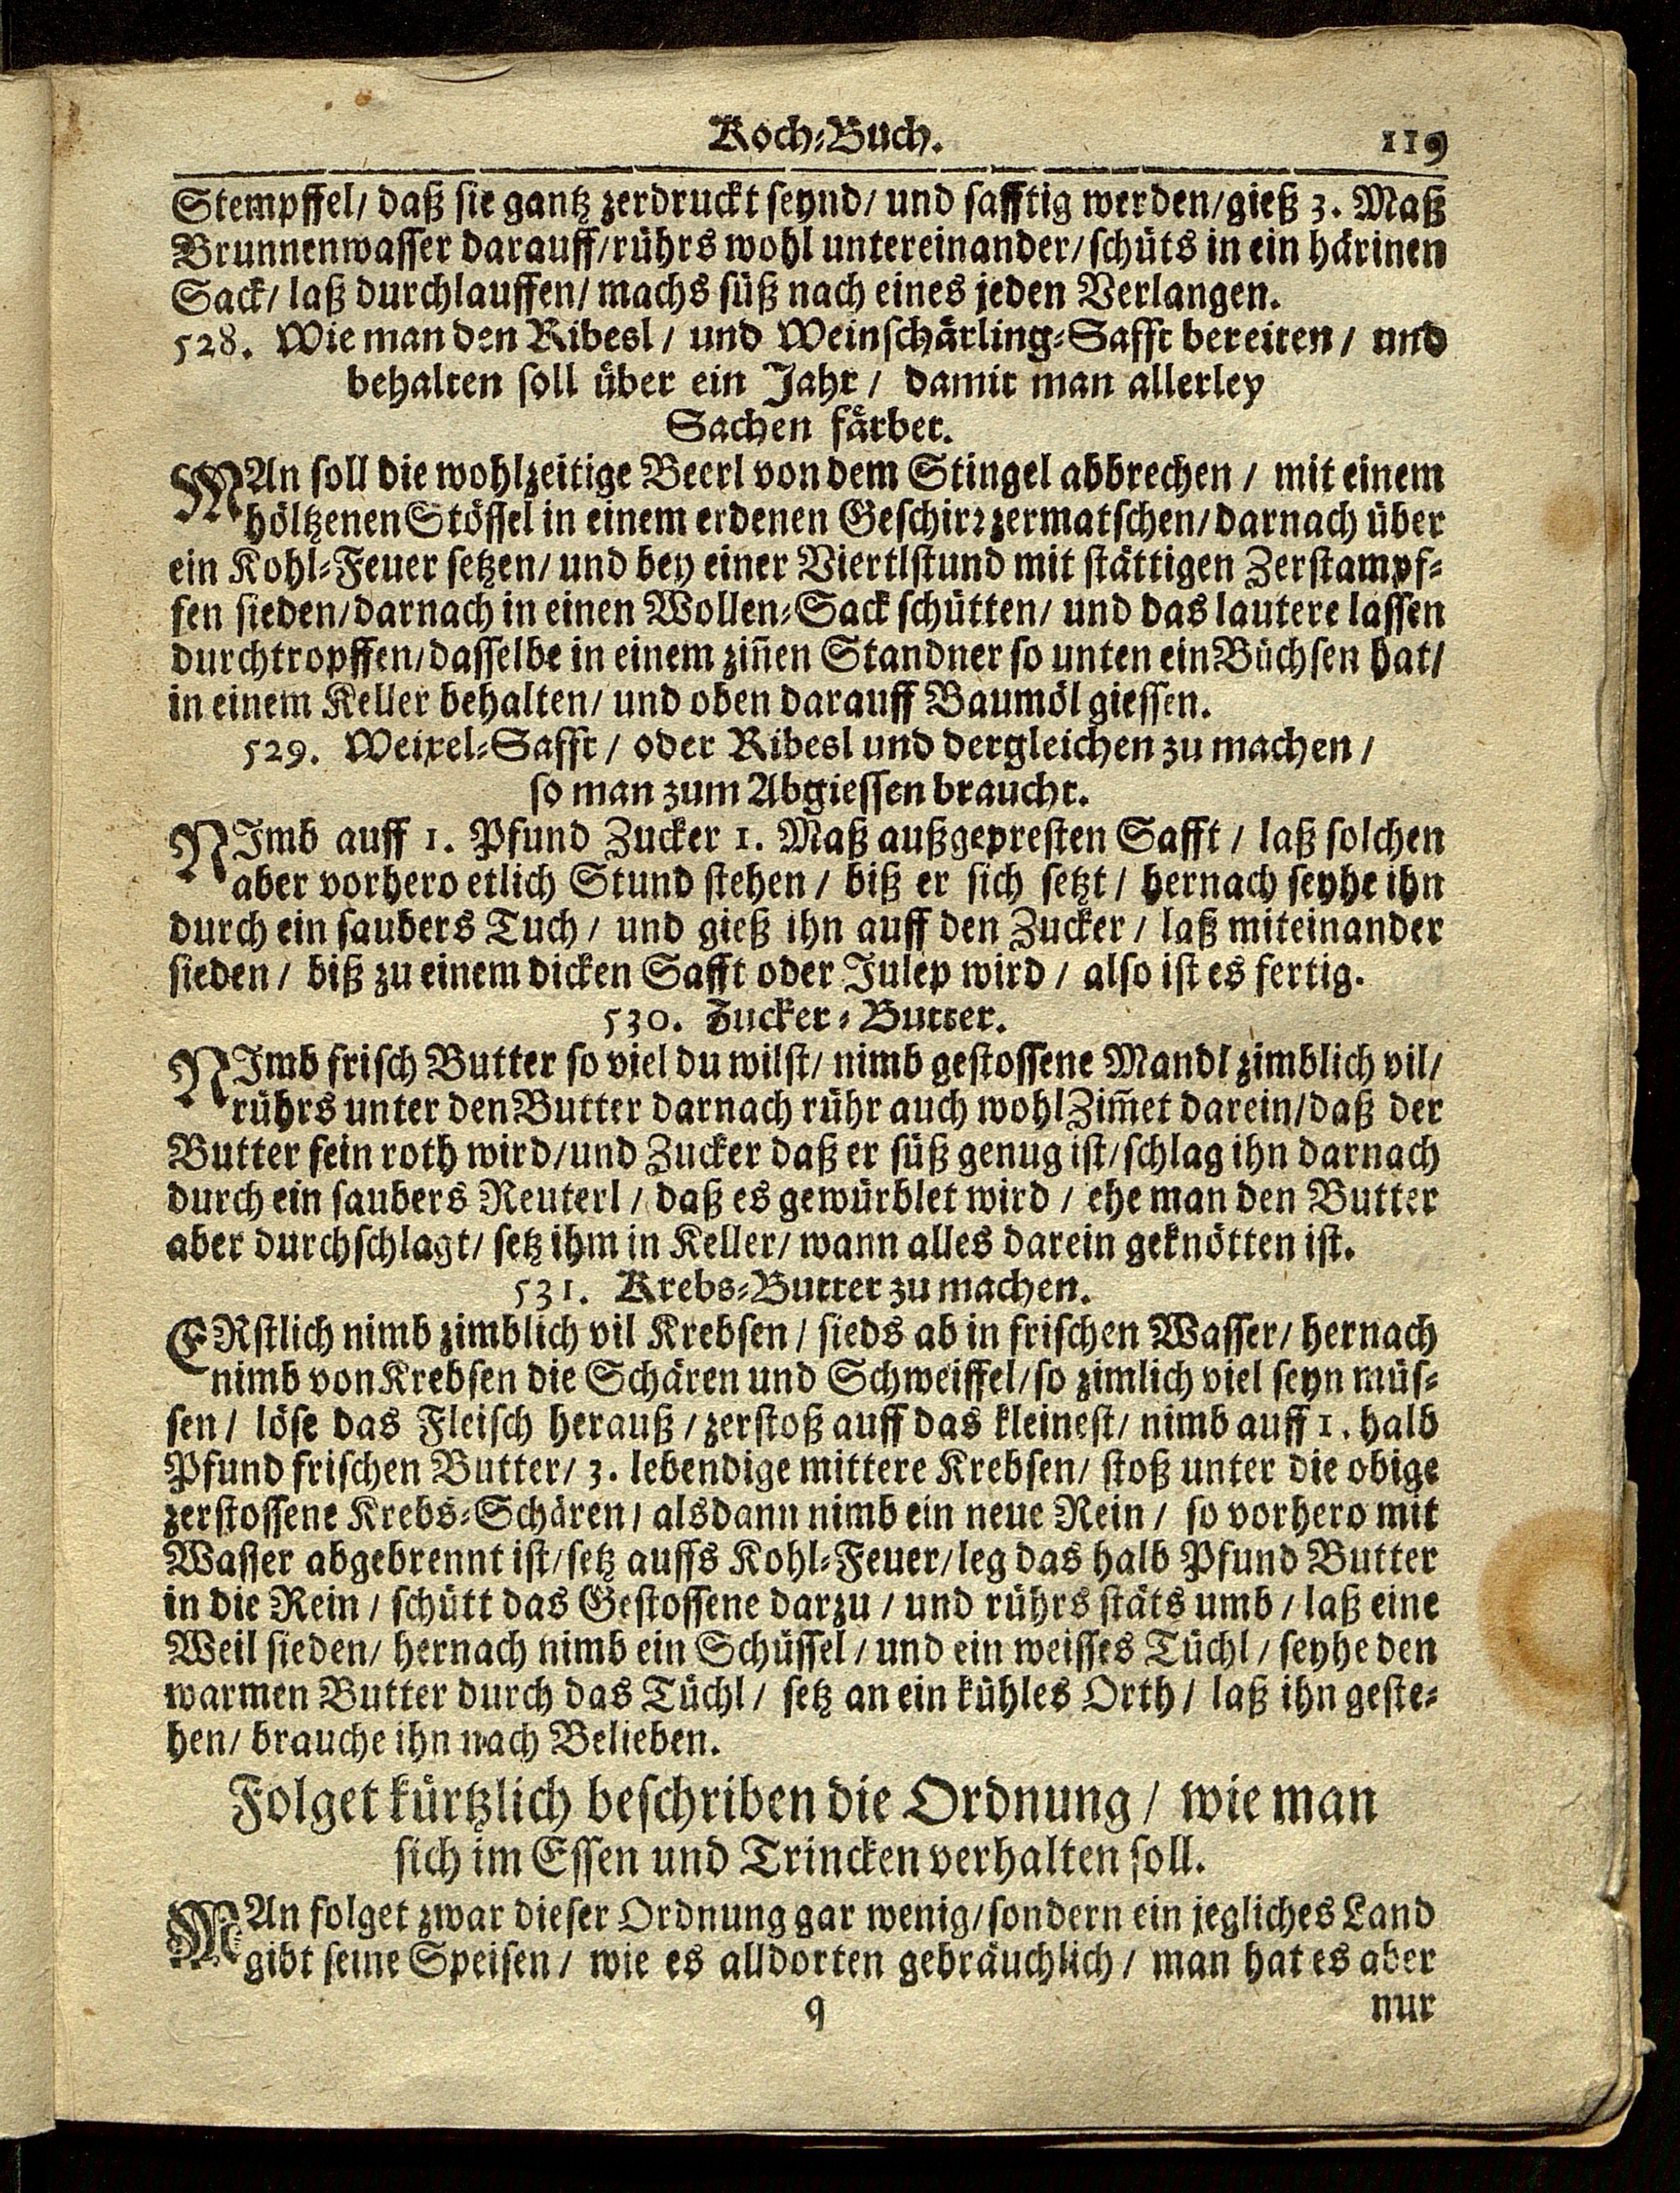 Koch-Buch. 119
Stempffel/ daß sie gantz zerdruckt seynd/ und safftig werden/gieß 3. Maß
Brunnenwasser darauff/rührs wohl untereinander/schüts in ein härinen
Sack/ laß durchlauffen/ machs süß nach eines jeden Verlangen.
528. Wie man den Ribesl/ und Weinschärling-Safft bereiten/ und
behalten soll über ein Jahr/ damit man allerley
Sachen färbet.
MAn soll die wohlzeitige Beerl von dem Stingel abbrechen/ mit einem
höltzenen Stössel in einem erdenen Geschirr zermatschen/darnach über
ein Kohl-Feuer setzen/ und bey einer Viertlstund mit stättigen Zerstampf-
fen sieden/darnach in einen Wollen-Sack schütten/ und das lautere lassen
durchtropffen/dasselbe in einem zin̄en Standner so unten ein Büchsen hat/
in einem Keller behalten/ und oben darauff Baumöl giessen.
529. Weixel-Safft/ oder Ribesl und dergleichen zu machen/
so man zum Abgiessen braucht.
NImb auff 1. Pfund Zucker 1. Maß außgepresten Safft/ laß solchen
aber vorhero etlich Stund stehen/ biß er sich setzt/ hernach seyhe ihn
durch ein saubers Tuch/ und gieß ihn auff den Zucker/ laß miteinander
sieden/ biß zu einem dicken Safft oder Julep wird/ also ist es fertig.
530. Zucker-Butter.
NImb frisch Butter so viel du wilst/ nimb gestossene Mandl zimblich vil/
rührs unter den Butter darnach rühr auch wohl Zim̄et darein/daß der
Butter fein roth wird/und Zucker daß er süß genug ist/schlag ihn darnach
durch ein saubers Reuterl/ daß es gewürblet wird/ ehe man den Butter
aber durchschlagt/ setz ihm in Keller/ wann alles darein geknötten ist.
531. Krebs-Butter zu machen.
ERstlich nimb zimblich vil Krebsen/ sieds ab in frischen Wasser/ hernach
nimb von Krebsen die Schären und Schweiffel/so zimlich viel seyn müs-
sen/ löse das Fleisch herauß/zerstoß auff das kleinest/ nimb auff 1. halb
Pfund frischen Butter/ 3. lebendige mittere Krebsen/ stoß unter die obige
zerstossene Krebs-Schären/ alsdann nimb ein neue Rein/ so vorhero mit
Wasser abgebrennt ist/setz auffs Kohl-Feuer/leg das halb Pfund Butter
in die Rein/ schütt das Gestossene darzu/ und rührs stäts umb/ laß eine
Weil sieden/ hernach nimb ein Schüssel/ und ein weisses Tüchl/ seyhe den
warmen Butter durch das Tüchl/ setz an ein kühles Orth/ laß ihn geste-
hen/ brauche ihn nach Belieben.
Folget kürtzlich beschriben die Ordnung/ wie man
sich im Essen und Trincken verhalten soll.
MAn folget zwar dieser Ordnung gar wenig/sondern ein jegliches Land
gibt seine Speisen/ wie es alldorten gebräuchlich/ man hat es aber
q nur